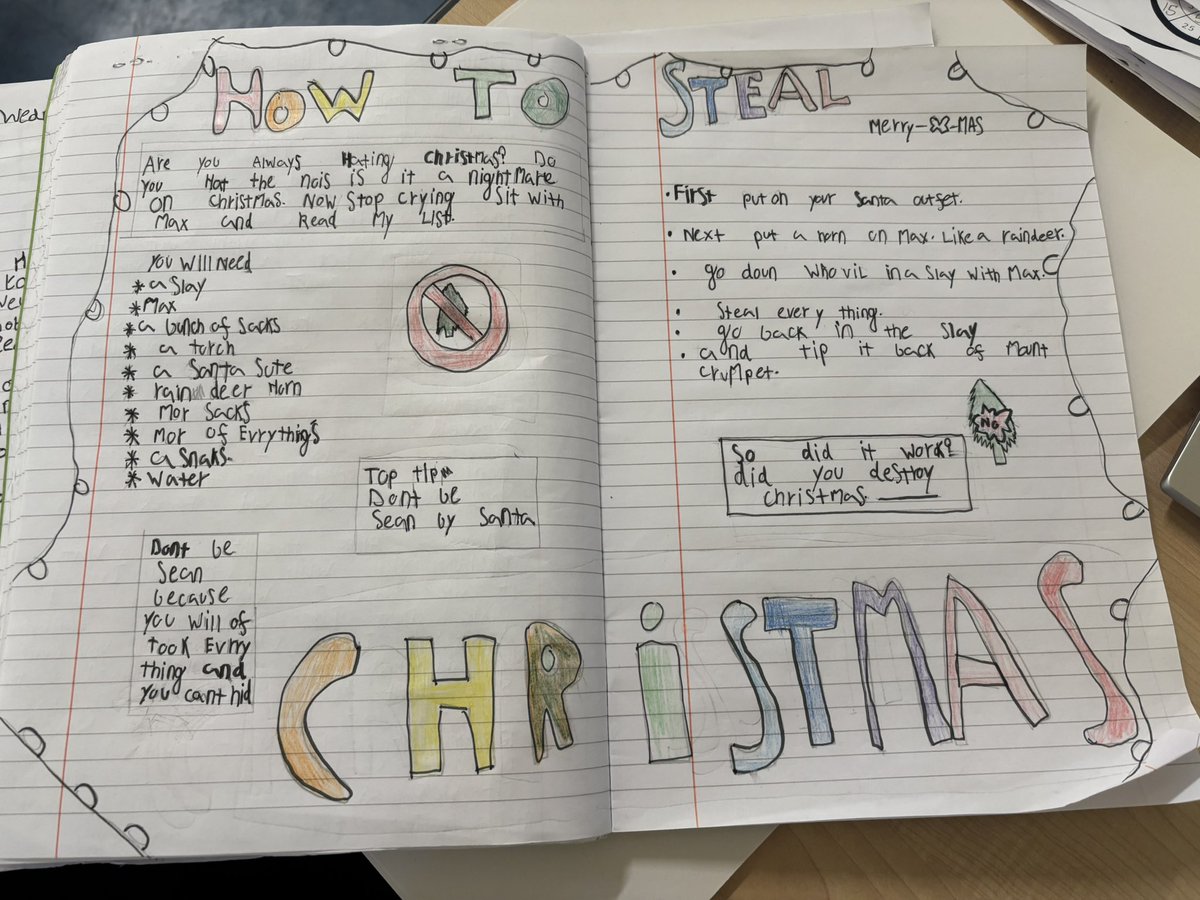 HOW TO STEAL
Merry-X-MAS
Are you Always Hating christmas? Do
you Hat the nois is it a nightmare
on christmas. Now stop crying Sit with
Max and Read My List.
you will Need
* a Slay
* Max
* a bunch of Sacks
* a torch
* a Santa Sute
* rain deer Horn
* Mor Sacks
* Mor of Evrything's
* a snaks.
* Water
Top tip
Dont be
Sean by Santa
Dont be
Sean
because
you will of
took Evrry
thing and
you cant hid
• First put on your Santa outfet.
• Next put a horn on Max. Like a raindeer.
• go doun whovil in a Slay with Max.
• Steal every thing.
• go back in the Slay
• and tip it back of Mount
crumpet.
No
So did it work?
did you destroy
christmas.
CHRISTMAS